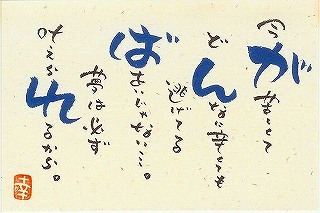 今が苦しくて
どんなに辛くても
逃げてる
ばあいじゃない…。
夢は必ず
叶えられるから。
幸